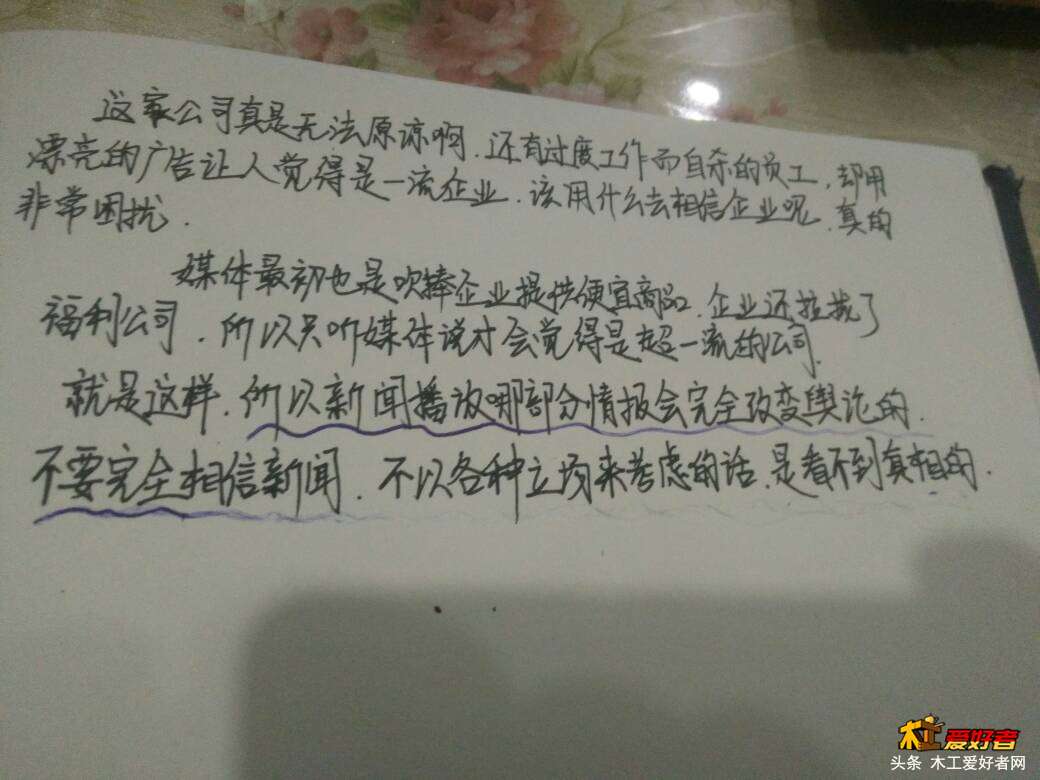 这家公司真是无法原谅啊.还有过度工作而自杀的员工,却用
漂亮的广告让人觉得是一流企业.该用什么去相信企业呢.真的
非常困扰.
媒体最初也是吹捧企业提供便宜商品.企业还拉拢了
福利公司.所以只听媒体说才会觉得是超一流的公司.
就是这样.所以新闻播放哪部分情报会完全改变舆论的.
不要完全相信新闻.不以各种立场来考虑的话.是看不到真相的.
木工爱好者
头条 木工爱好者网